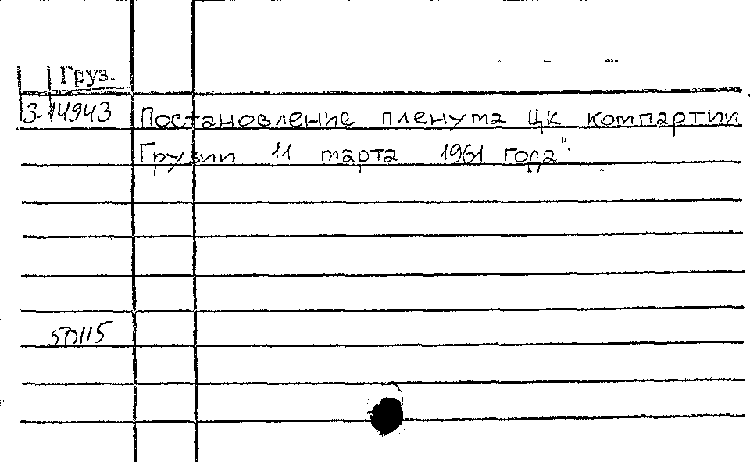 Груз.
3-14943 Постановление пленума ЦК компартии
Грузии 11 марта 1961 года"
50115